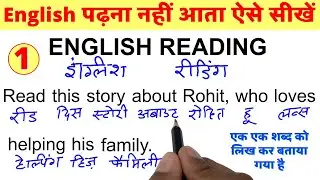 English पढ़ना नहीं आता ऐसे सीखें
1 ENGLISH READING
इंग्लिश रीडिंग
Read this story about Rohit, who loves
रीड दिस स्टोरी अबाउट रोहित हू लव्स
helping his family.
हेल्पिंग हिज़ फैमिली
एक एक शब्द को
लिख कर बताया
गया है